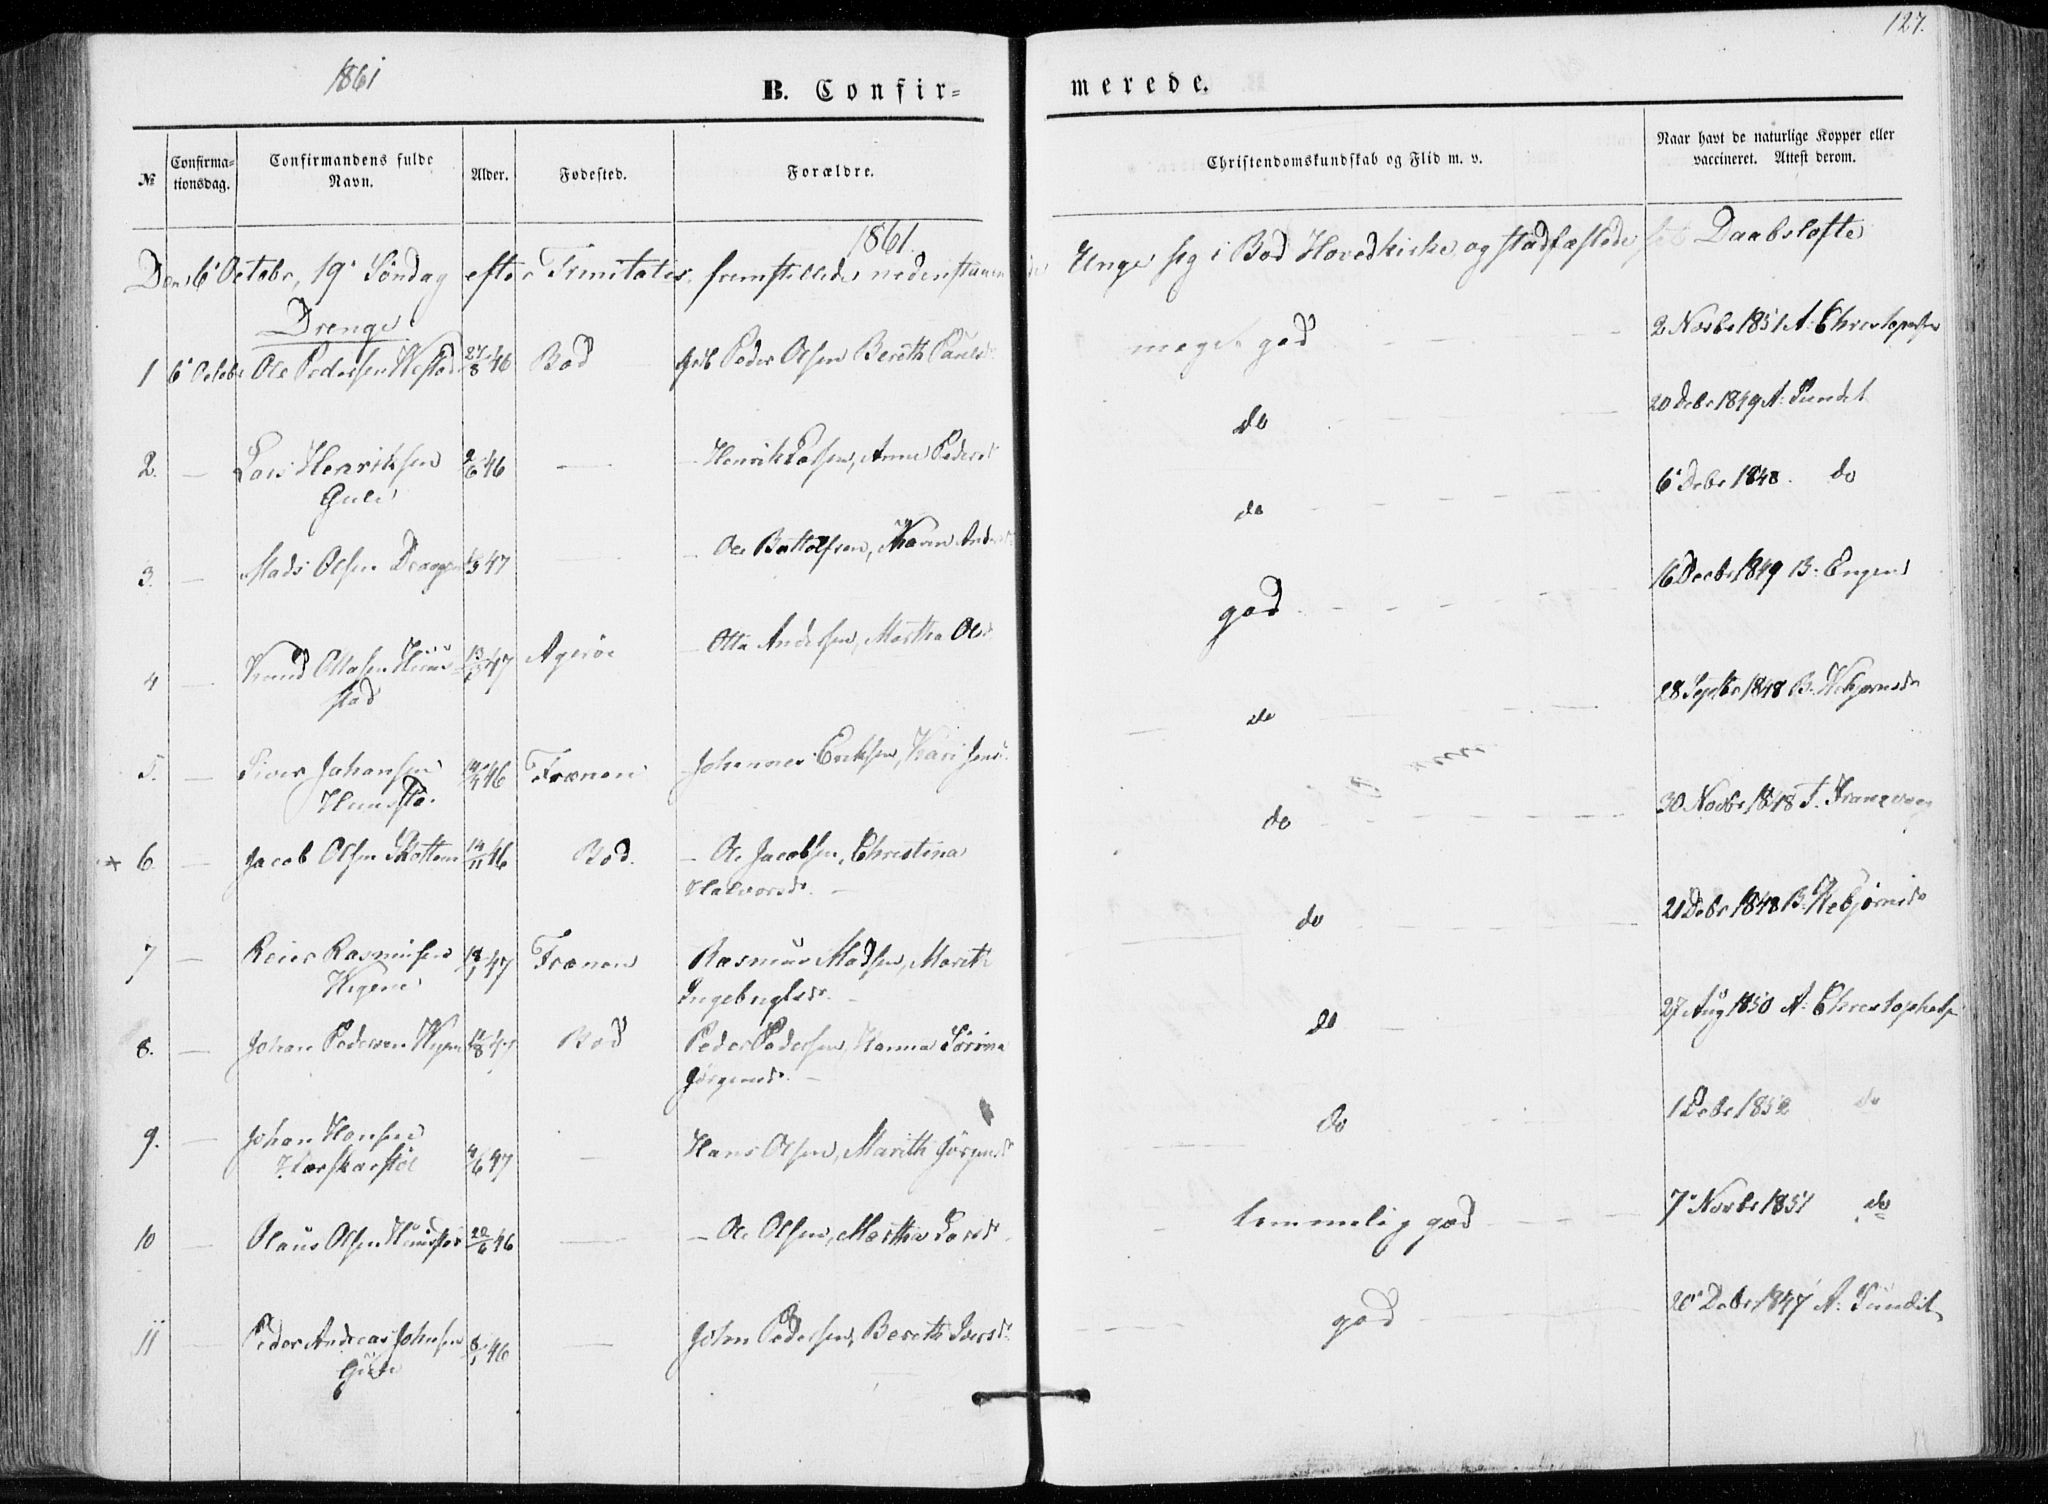 127.
1861
B. Confir-
merede.
№
Confirma-
tionsdag.
Confirmandens fulde
Navn.
Alder.
Fødested.
Forældre.
Christendomskundskab og Flid m. v.
Naar havt de naturlige Kopper eller
vaccineret. Attest derom.
1861.
Den 6 Octobr, 19 Søndag efter Trinitatis, fremstillede nedenstaaende Unge sig i Bod Hovedkirke og stadfæstede Daabsløfte
Drenge
1 6 Octobr Ole Pedersen 27/8 46 Bod Peder Olsen Berith Pauls
meget god
2 Novbr 1851 A. Christophers
2. — Lars Henriksen
Gule
2/6 46 — Henrik Larsen, Anne Peders
do
20 Debr 1849 A. Sundet
3. — Mads Olsen 47 — Ole Bottolfsen, Karen Anders
do
6 Debr 1848. do
4 — Knud Ottosen
stad
47 Agerøe — Otto Andersen, Martha Ols
god
16 Decbr 1849 B. Engen
5. — Siver Johansen
46 Frænen Johannes Eriksen, Kari Jens
do
28 Septbr 1848 B.
* 6. — Jacob Olsen 14/11 46 Bod. — Ole Jacobsen, Christina
Halvorsdr. —
do
30 Novbr 1848
7 — Reier Rasmusen
18/1 47 Frænen Rasmus Madsen, Marith
—
do
21 Debr 1848 B.
8. — Johan Pedersen 47 Bod Peder Pedersen, Hanna Sørina
Jørgensdr. —
do
27 Aug 1850 A. Christophers
9. — Johan Hansen
Harskarstøl
4/6 47 — Hans Olsen, Marith Jørgensdr
do
1 Debr 1852 do
10 — Olaus Olsen 20/6 46 — — Ole Olsen, Martha Larsdr
temmelig god
7 Novbr 1851 do
11 — Peder Andreas Johnsen
Gule
8/1 46 — John Pedersen, Berith Iversdr
god
20 Debr 1847 A. Sundet